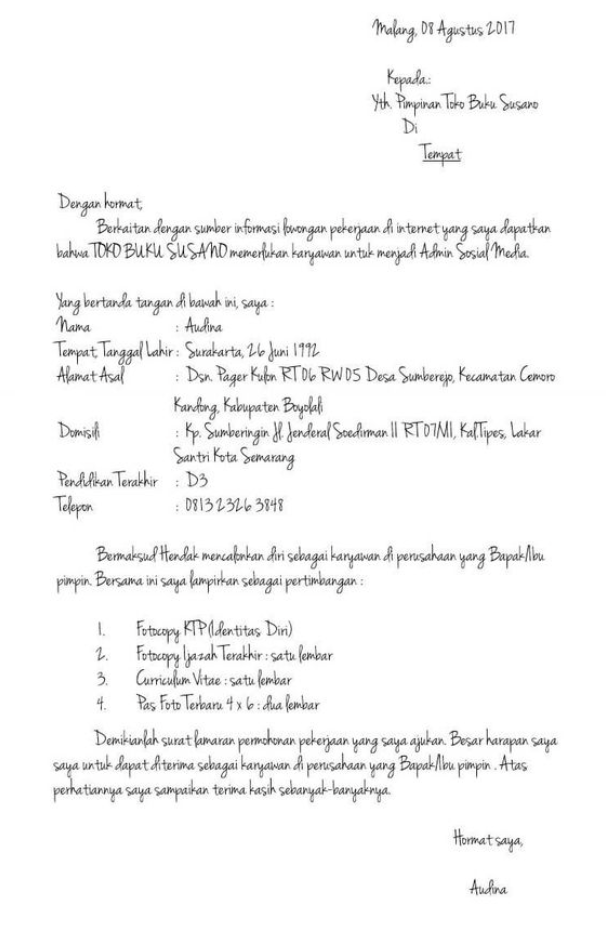 Malang, 08 Agustus 2017
Kepada:
Yth. Pimpinan Toko Buku Susano
Di
Tempat
Dengan hormat,
Berkaitan dengan sumber informasi lowongan pekerjaan di internet yang saya dapatkan
bahwa TOKO BUKU SUSANO memerlukan karyawan untuk menjadi Admin Sosial Media.
Yang bertanda tangan di bawah ini, saya :
Nama : Audina
Tempat, Tanggal Lahir : Surakarta, 26 Juni 1992
Alamat Asal : Dsn. Pager Kulon RT 06 RW 05 Desa Sumberejo, Kecamatan Cemoro
Kandong, Kabupaten Boyolali
Domisili : Kp. Sumberingin Jl. Jenderal Soedirman II RT 07/VI, Kal.Tipes, Lakar
Santri Kota Semarang
Pendidikan Terakhir : D3
Telepon : 0813 2326 3848
Bermaksud Hendak mencalonkan diri sebagai karyawan di perusahaan yang Bapak/Ibu
pimpin. Bersama ini saya lampirkan sebagai pertimbangan :
1. Fotocopy KTP (Identitas Diri)
2. Fotocopy Ijazah Terakhir : satu lembar
3. Curriculum Vitae : satu lembar
4. Pas Foto Terbaru 4 x 6 : dua lembar
Demikianlah surat lamaran permohonan pekerjaan yang saya ajukan. Besar harapan saya
saya untuk dapat diterima sebagai karyawan di perusahaan yang Bapak/Ibu pimpin . Atas
perhatiannya saya sampaikan terima kasih sebanyak-banyaknya.
Hormat saya,
Audina